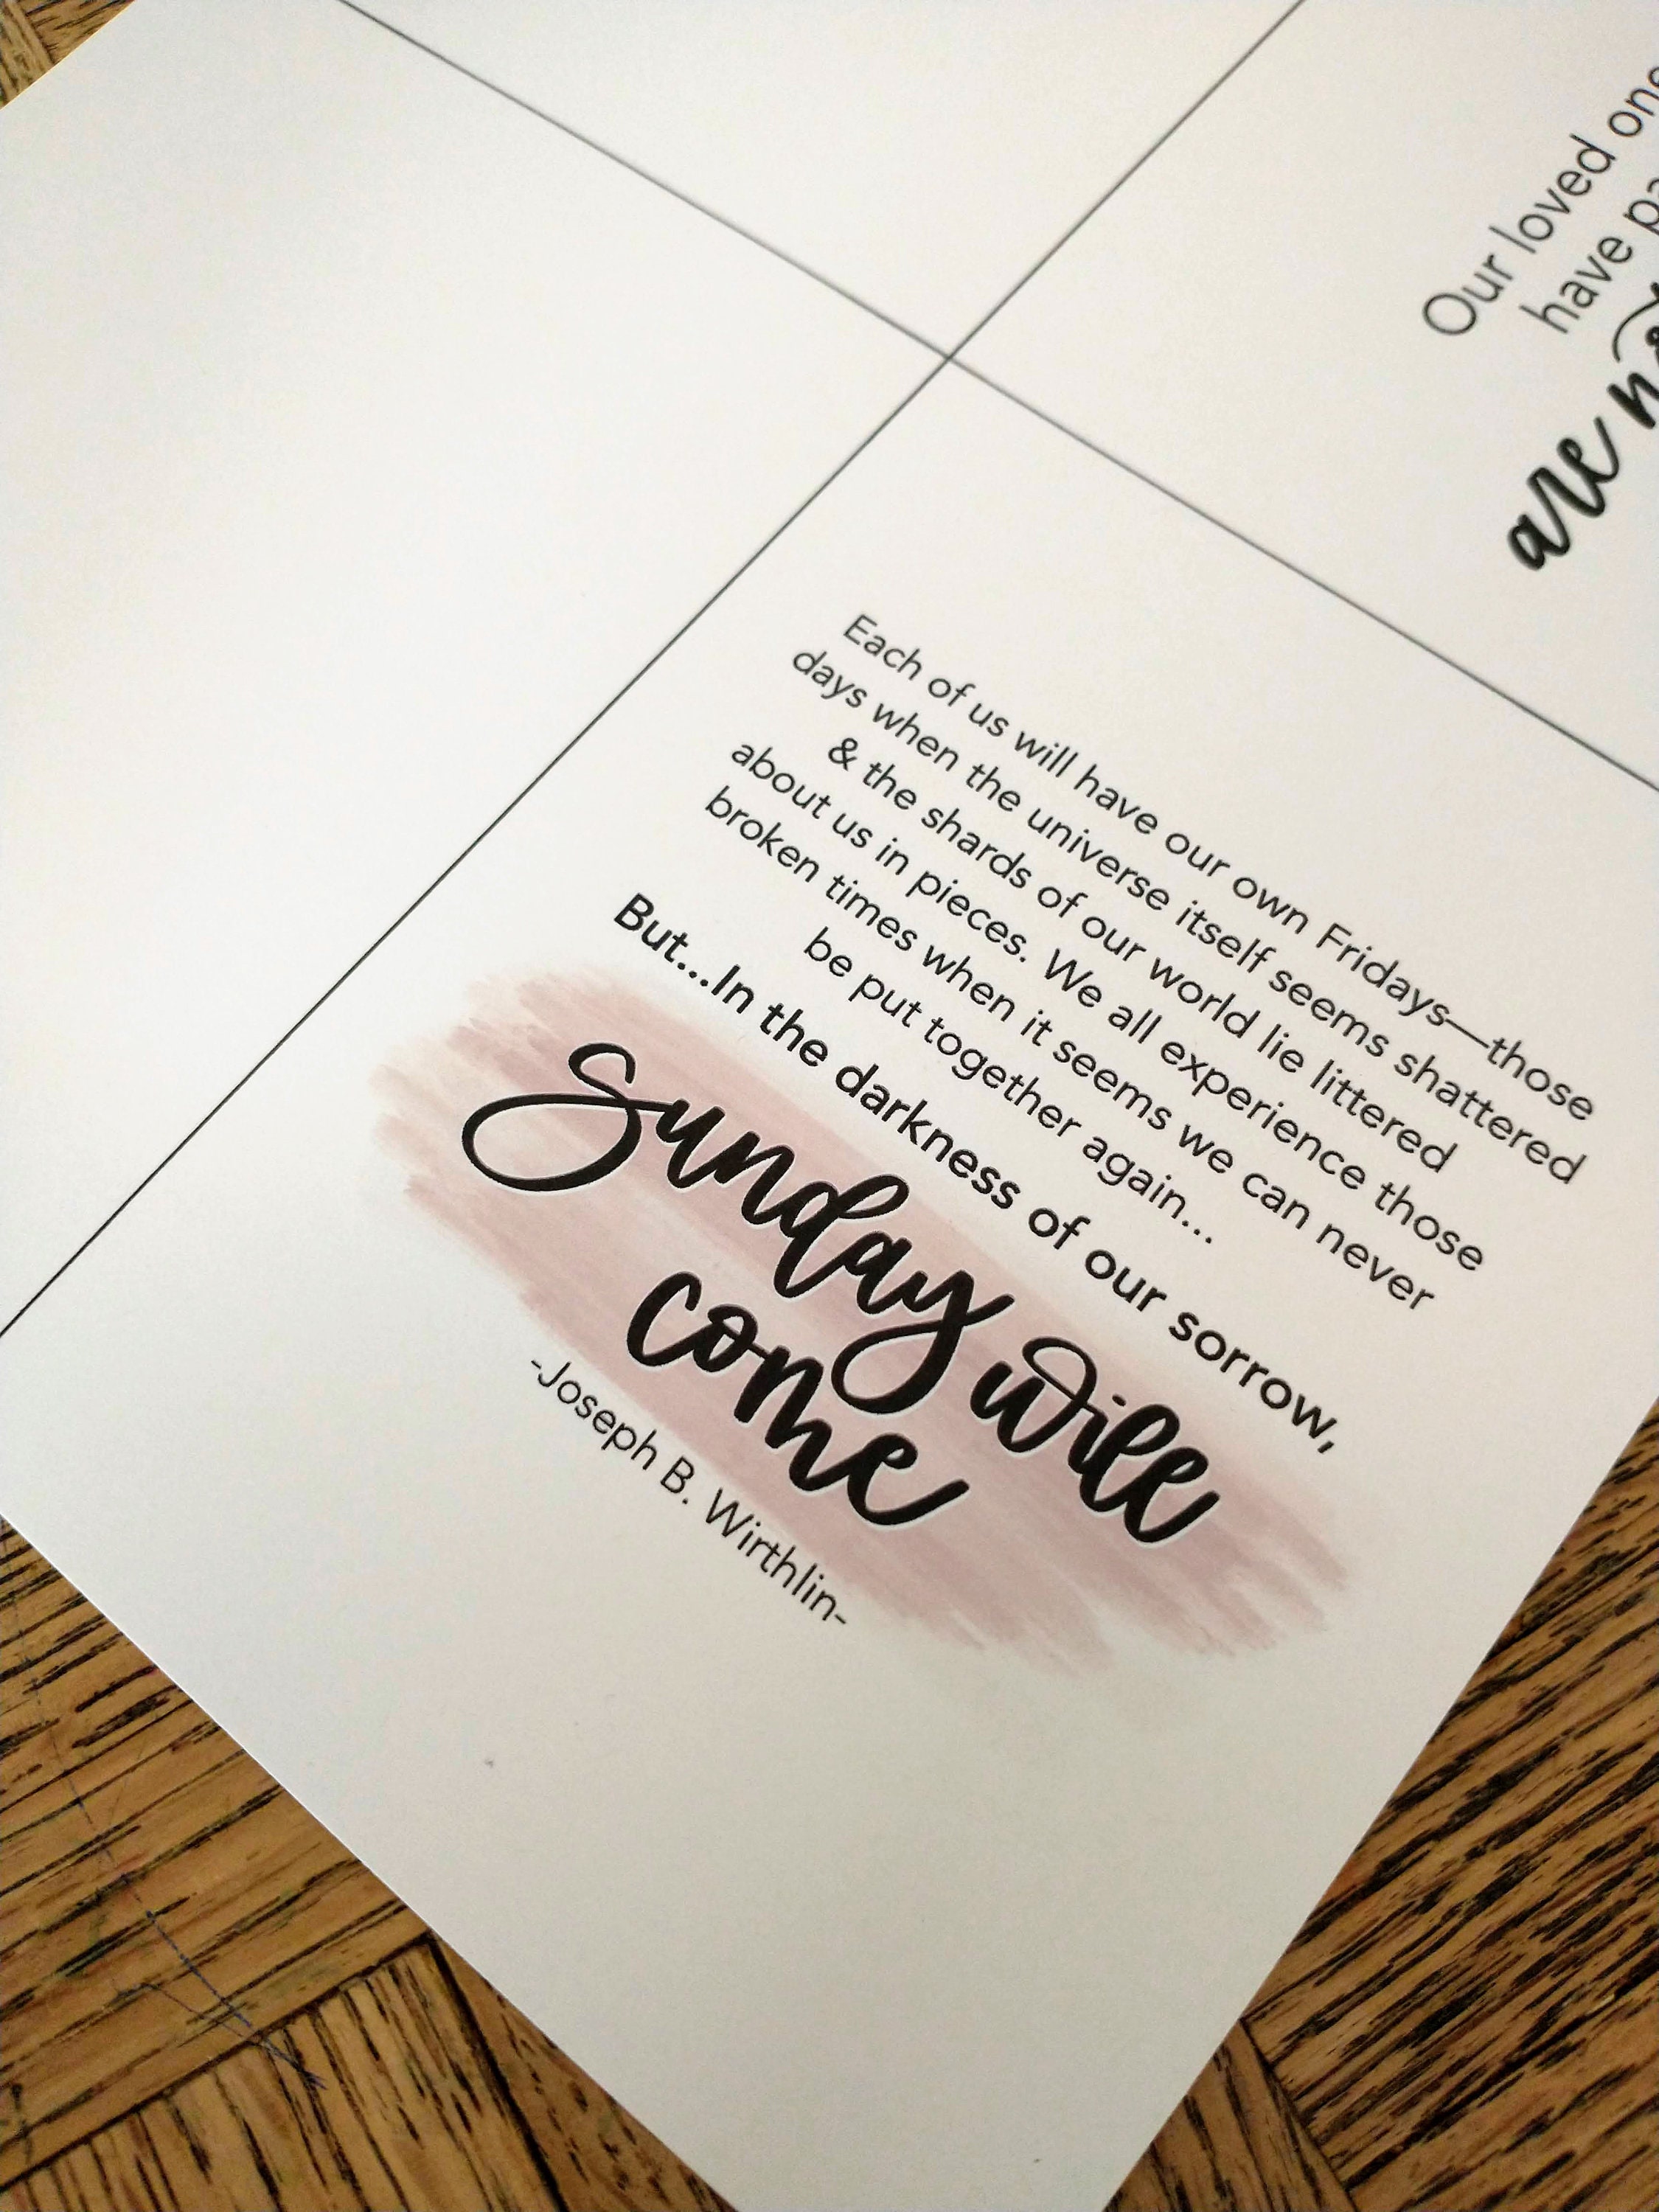 Our loved
have
are
Each of us will have our own Fridays—those
days when the universe itself seems shattered
& the shards of our world lie littered
about us in pieces. We all experience those
broken times when it seems we can never
be put together again...
But...In the darkness of our sorrow,
Sunday will
come
-Joseph B. Wirthlin-